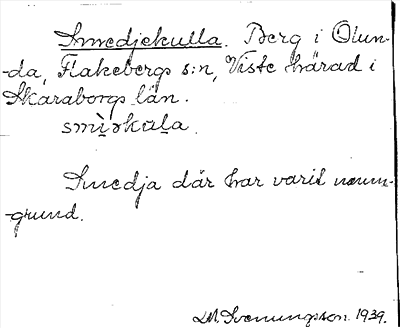 Smedjekulla. Berg i Olun-
-da, Flakebergs s:n, Viste härad i
Skaraborgs län.
smìǝkùla.
Smedja där har varit namn-
-grund.
Svenungsson. 1939.